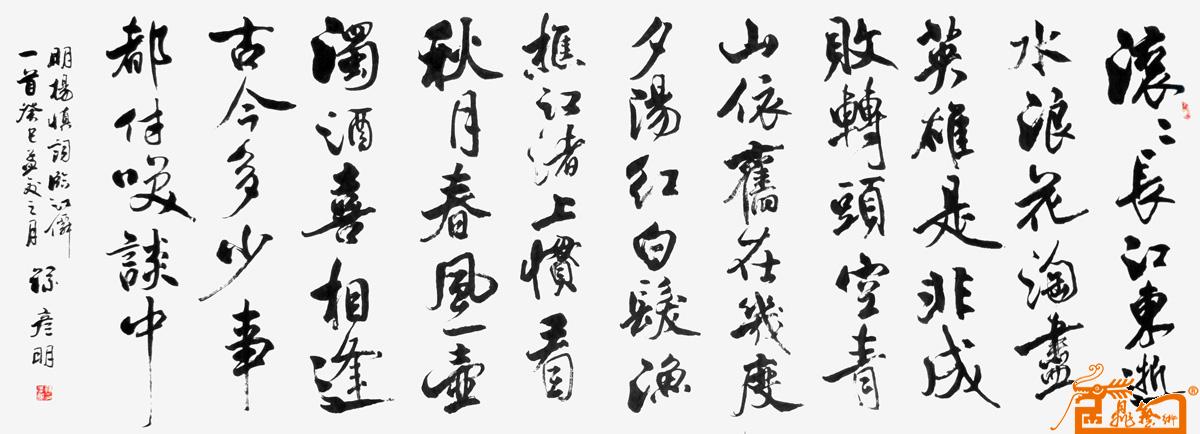 滚〻長江東逝
水浪花淘盡
英雄是非成
敗轉頭空青
山依舊在幾度
夕陽红白髮漁
樵江渚上慣看
秋月春風一壺
濁酒喜相逢
古今多少事
都付咲談中
明楊慎詞臨江僊
一首癸巳之月 孫彦明